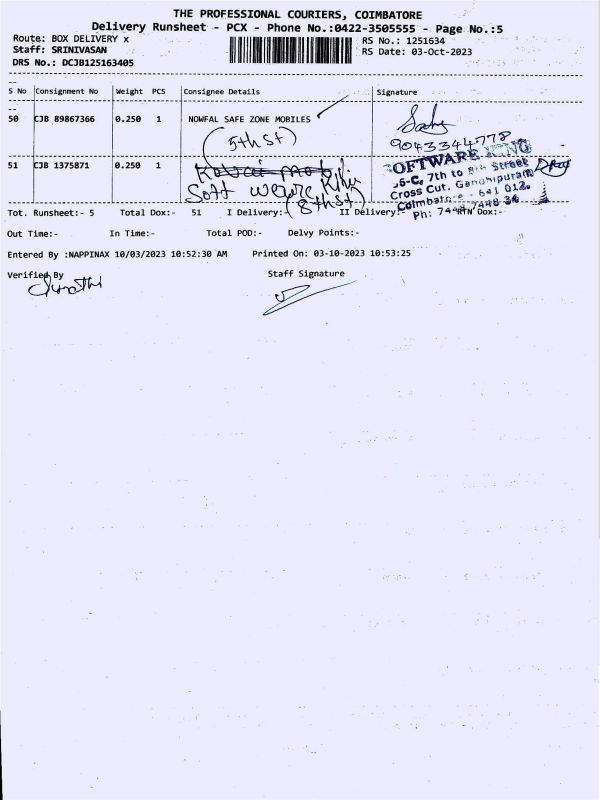 THE PROFESSIONAL COURIERS, COIMBATORE
Delivery Runsheet - PCX - Phone No.:0422-3505555 - Page No.:5
Route: BOX DELIVERY x
RS No.: 1251634
Staff: SRINIVASAN
RS Date: 03-Oct-2023
DRS No.: DCJB125163405
S No Consignment No Weight PCS Consignee Details Signature
50 CJB 89867366 0.250 1 NOWFAL SAFE ZONE MOBILES
(5th St)
9043344778
51 CJB 1375871 0.250 1
Soft
(8th St)
OFTWARE KING
7th to 8th Street
Cross Cut, Gandhipuram
Coimbatore - 641 012.
Tot. Runsheet:- 5 Total Dox:- 51 I Delivery:- II Delivery:- RTN Dox:-
Ph:
Out Time:- In Time:- Total POD:- Delvy Points:-
Entered By :NAPPINAX 10/03/2023 10:52:30 AM Printed On: 03-10-2023 10:53:25
Verified By Staff Signature